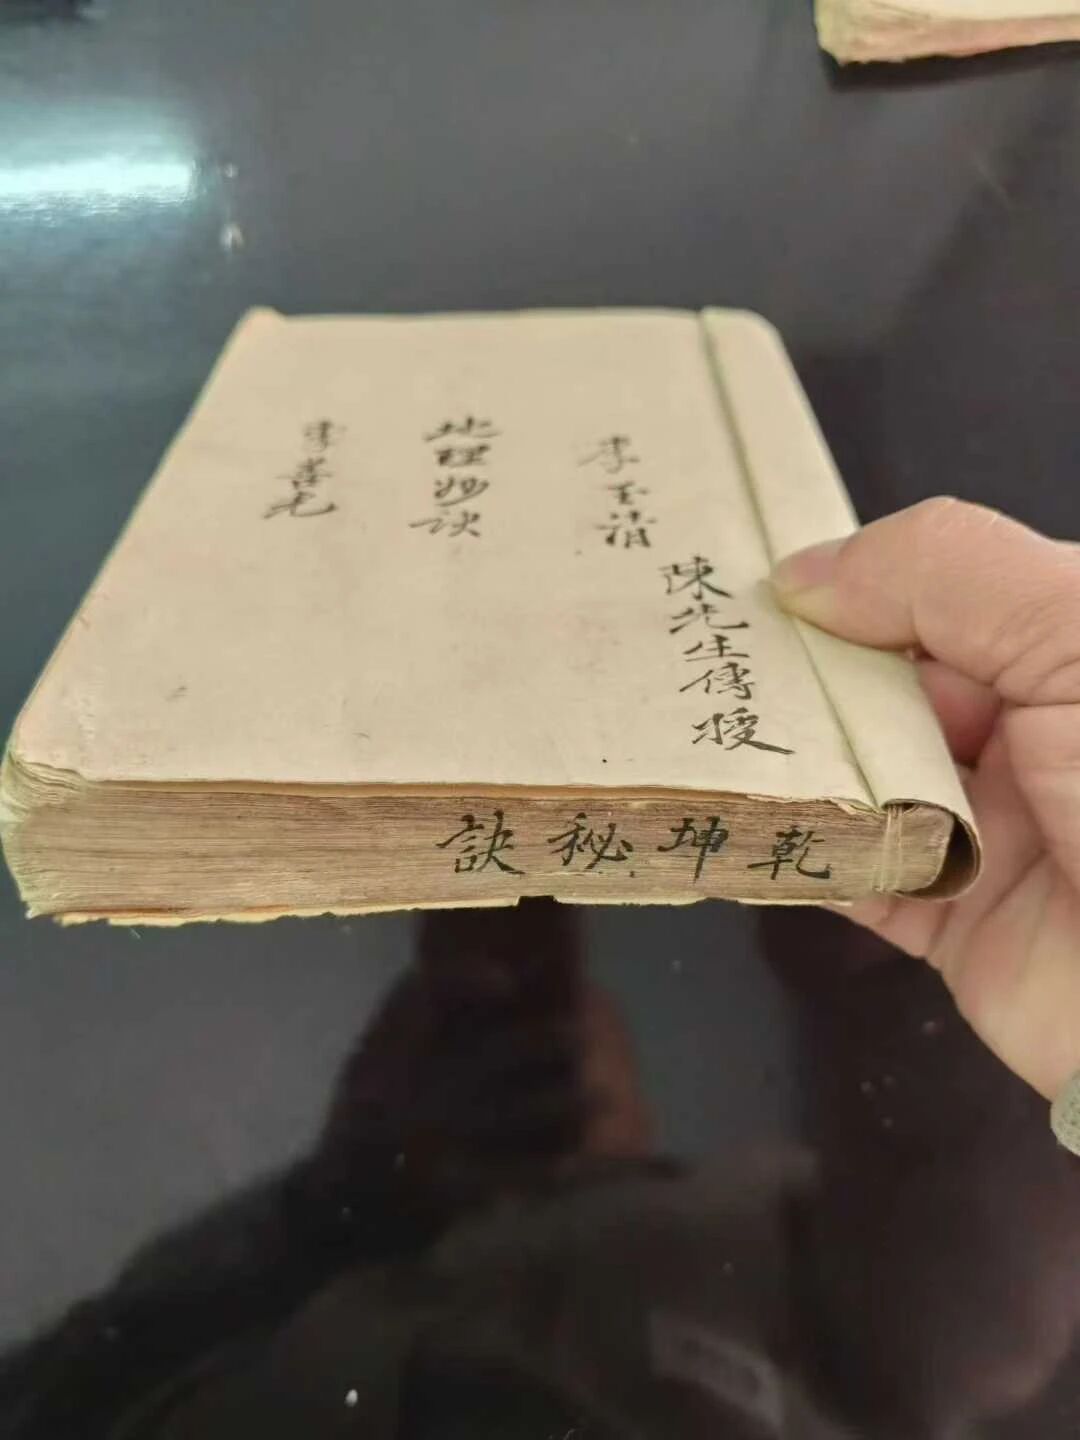 陳先生傳授
李玉清
地理妙訣
李善毛
乾坤秘訣